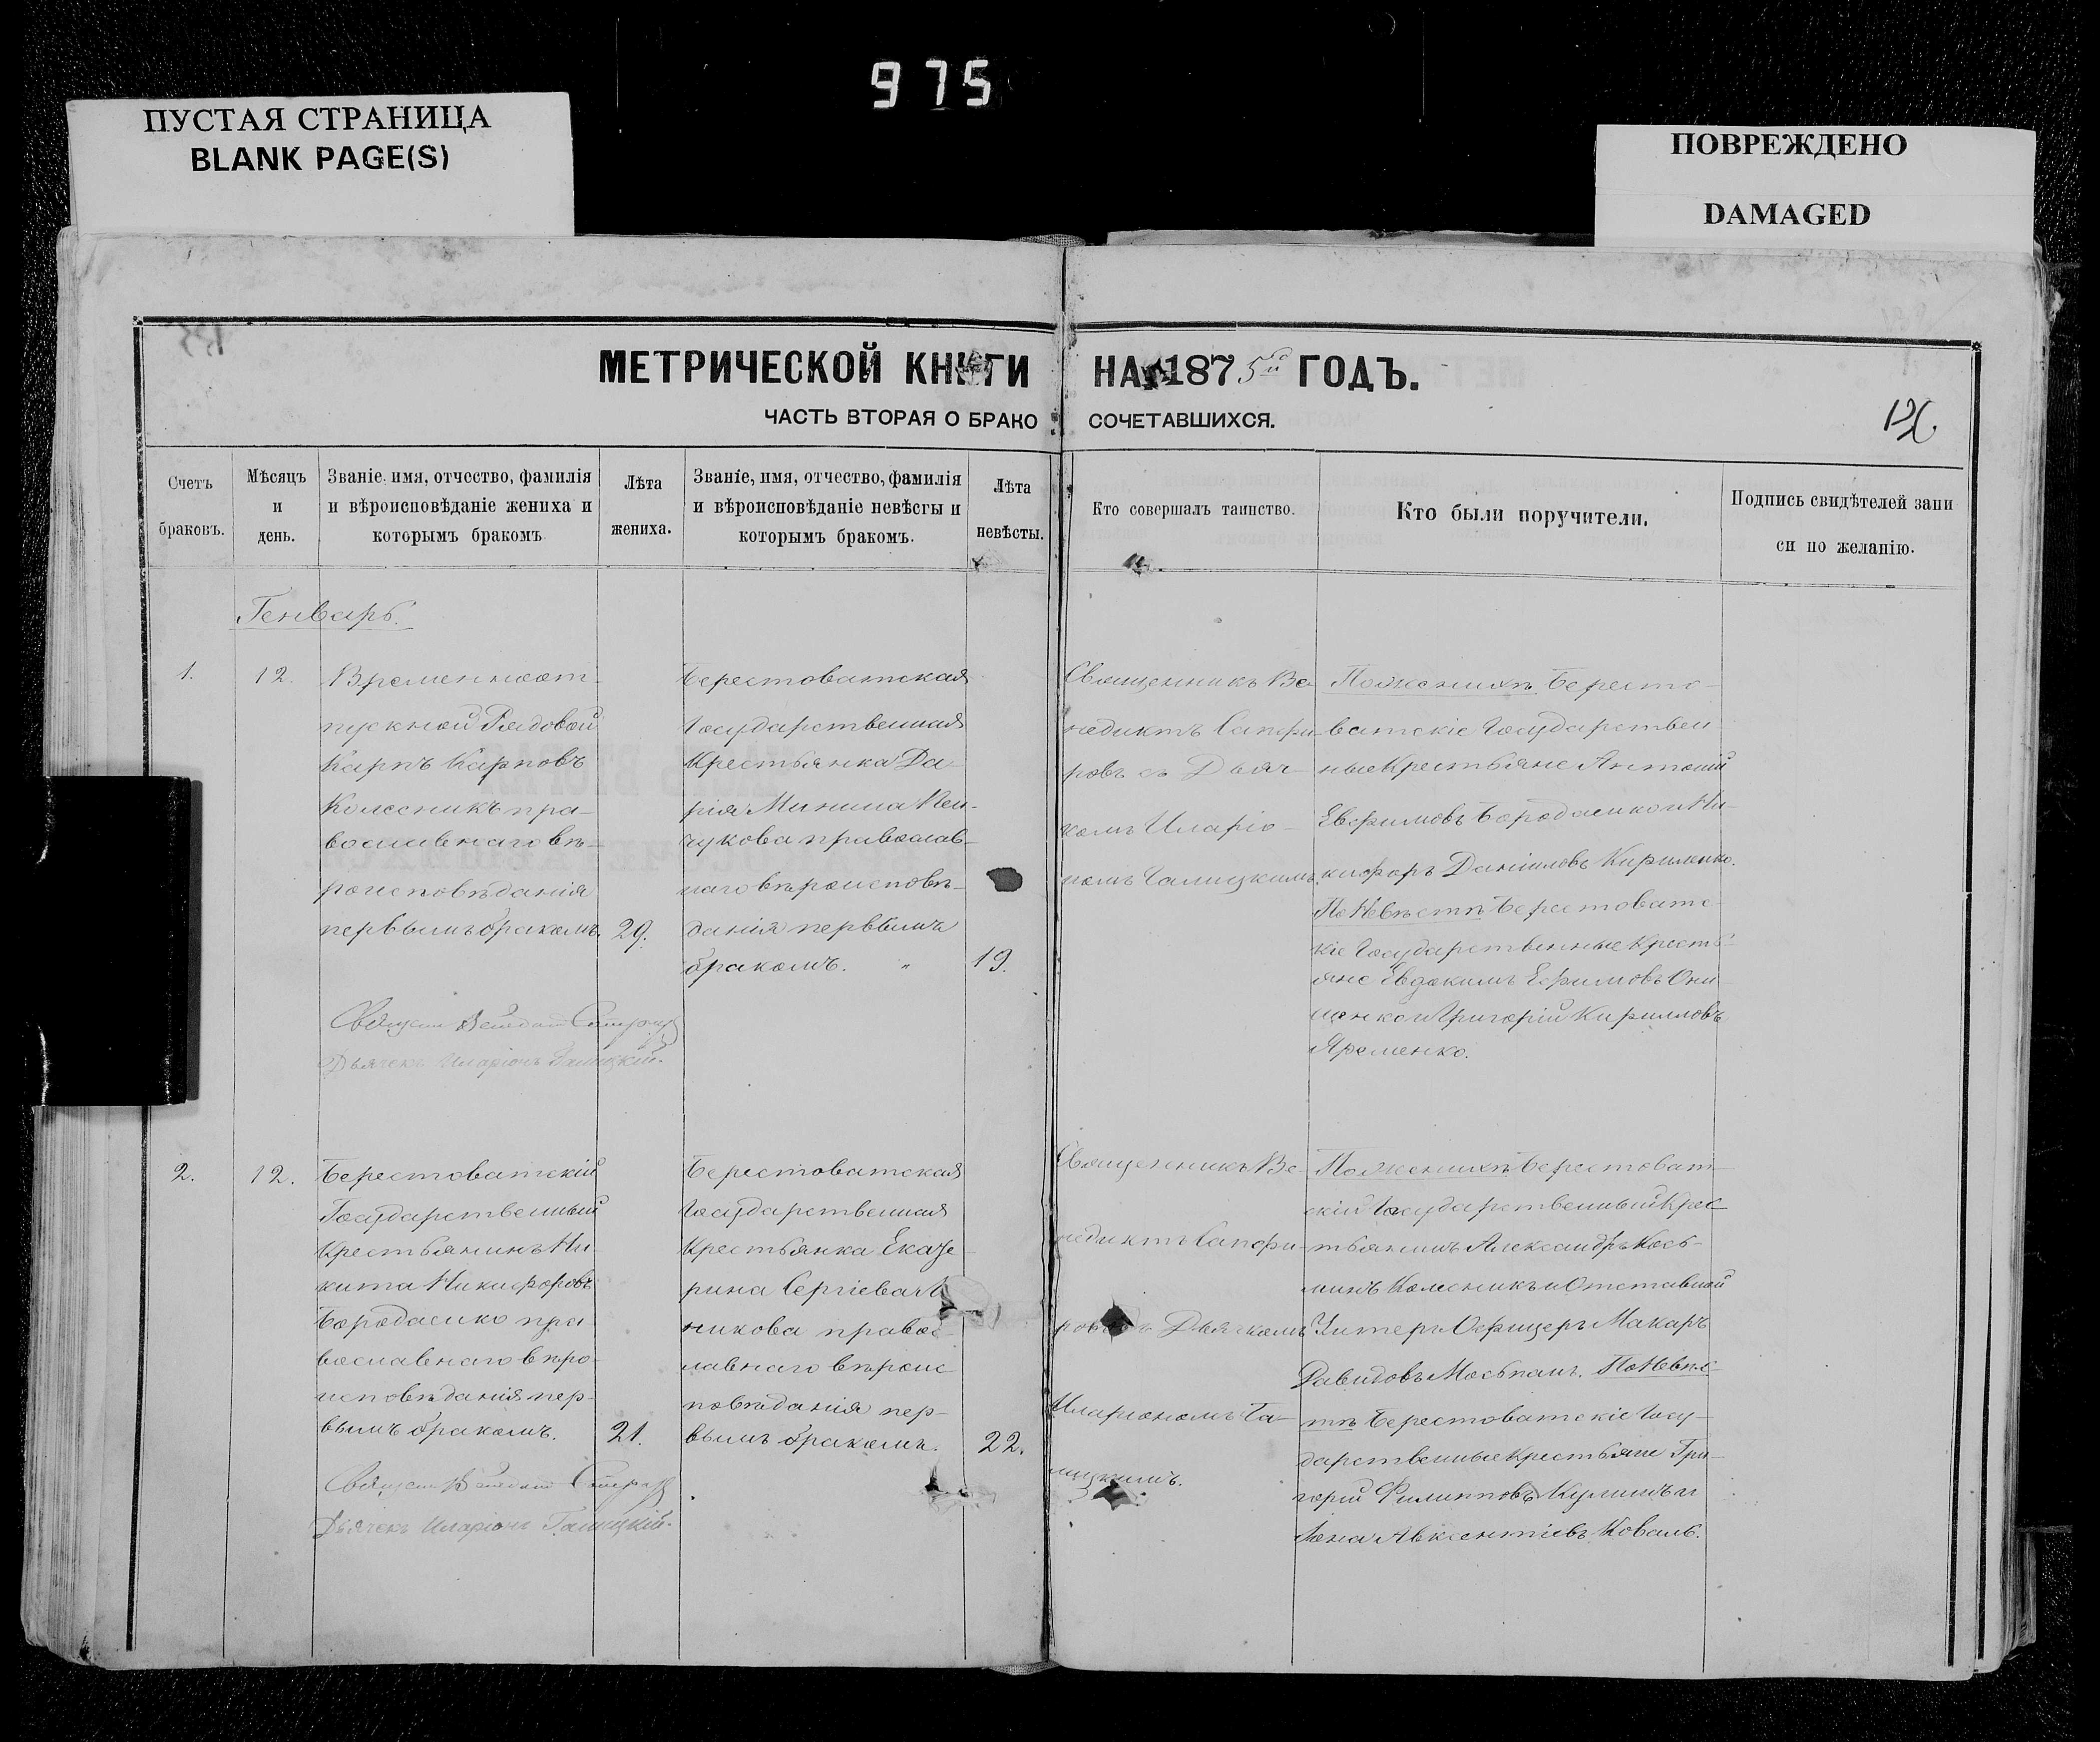 975
ПУСТАЯ СТРАНИЦА
BLANK PAGE(S)
ПОВРЕЖДЕНО
DAMAGED
МЕТРИЧЕСКОЙ КНИГИ НА 1875й ГОДЪ.
ЧАСТЬ ВТОРАЯ О БРАКО СОЧЕТАВШИХСЯ.
Счетъ
браковъ.
Мѣсяцъ
и
день.
Званіе, имя, отчество, фамилія
и вѣроисповѣданіе жениха и
которымъ бракомъ
Лѣта
жениха.
Званіе, имя, отчество, фамилія
и вѣроисповѣданіе невѣсты и
которымъ бракомъ.
Лѣта
невѣсты.
Кто совершалъ таинство.
Кто были поручители.
Подпись свидѣтелей запи
си по желанію.
Генварь.
1.
12.
Временноот-
пускной Рядовой
Карпъ Карповъ
Колесникъ пра-
вославнаго вѣ-
роисповѣданія
первымъ бракомъ.
29.
Берестоватская
Государственная
Крестьянка Да
рія Минина
чукова православ-
наго вѣроисповѣ-
данія первымъ
бракомъ. "
19.
Священникъ Ве-
недиктъ Сапфи-
ровъ съ Дьяч-
комъ Иларіо-
номъ Галицкимъ.
По Женихѣ Бересто-
ватскіе Государствен
ные Крестьяне Антоній
Евфимовъ Бородаенко и Ни-
кифоръ Даніиловъ Кириленко.
По Невѣстѣ Берестоватс-
кіе Государственные Кресть-
яне Евдокимъ Ефимовъ Они-
щенко и Григорій Кирилловъ
Яременко.
Дьячекъ Иларіонъ Галицкій.
2.
12.
Берестоватскій
Государственный
Крестьянинъ Ни-
кита Никифоровъ
Бородаенко пра
вославнаго вѣро-
исповѣданія пер-
вымъ бракомъ.
21.
Берестоватская
Государственная
Крестьянка Екате
рина Сергіева
никова правос-
лавнаго вѣроис
повѣданія пер-
вымъ бракомъ.
22.
Священникъ Ве-
недиктъ Сапфи-
ровъ съ Дьячкомъ
Иларіономъ Га-
лицкимъ.
По Женихѣ Берестоват-
скій Государственный Крес-
тьянинъ Александръ Кось-
минъ Колесникъ и Отставной
Унтеръ Офицеръ Макаръ
Давидовъ Моспанъ. По Невѣс-
тѣ Берестоватскіе Госу-
дарственные Крестьяне Гри-
горій Филипповъ Кулишъ и
Іона Авксентіевъ Коваль.
Дьячекъ Иларіонъ Галицкій.